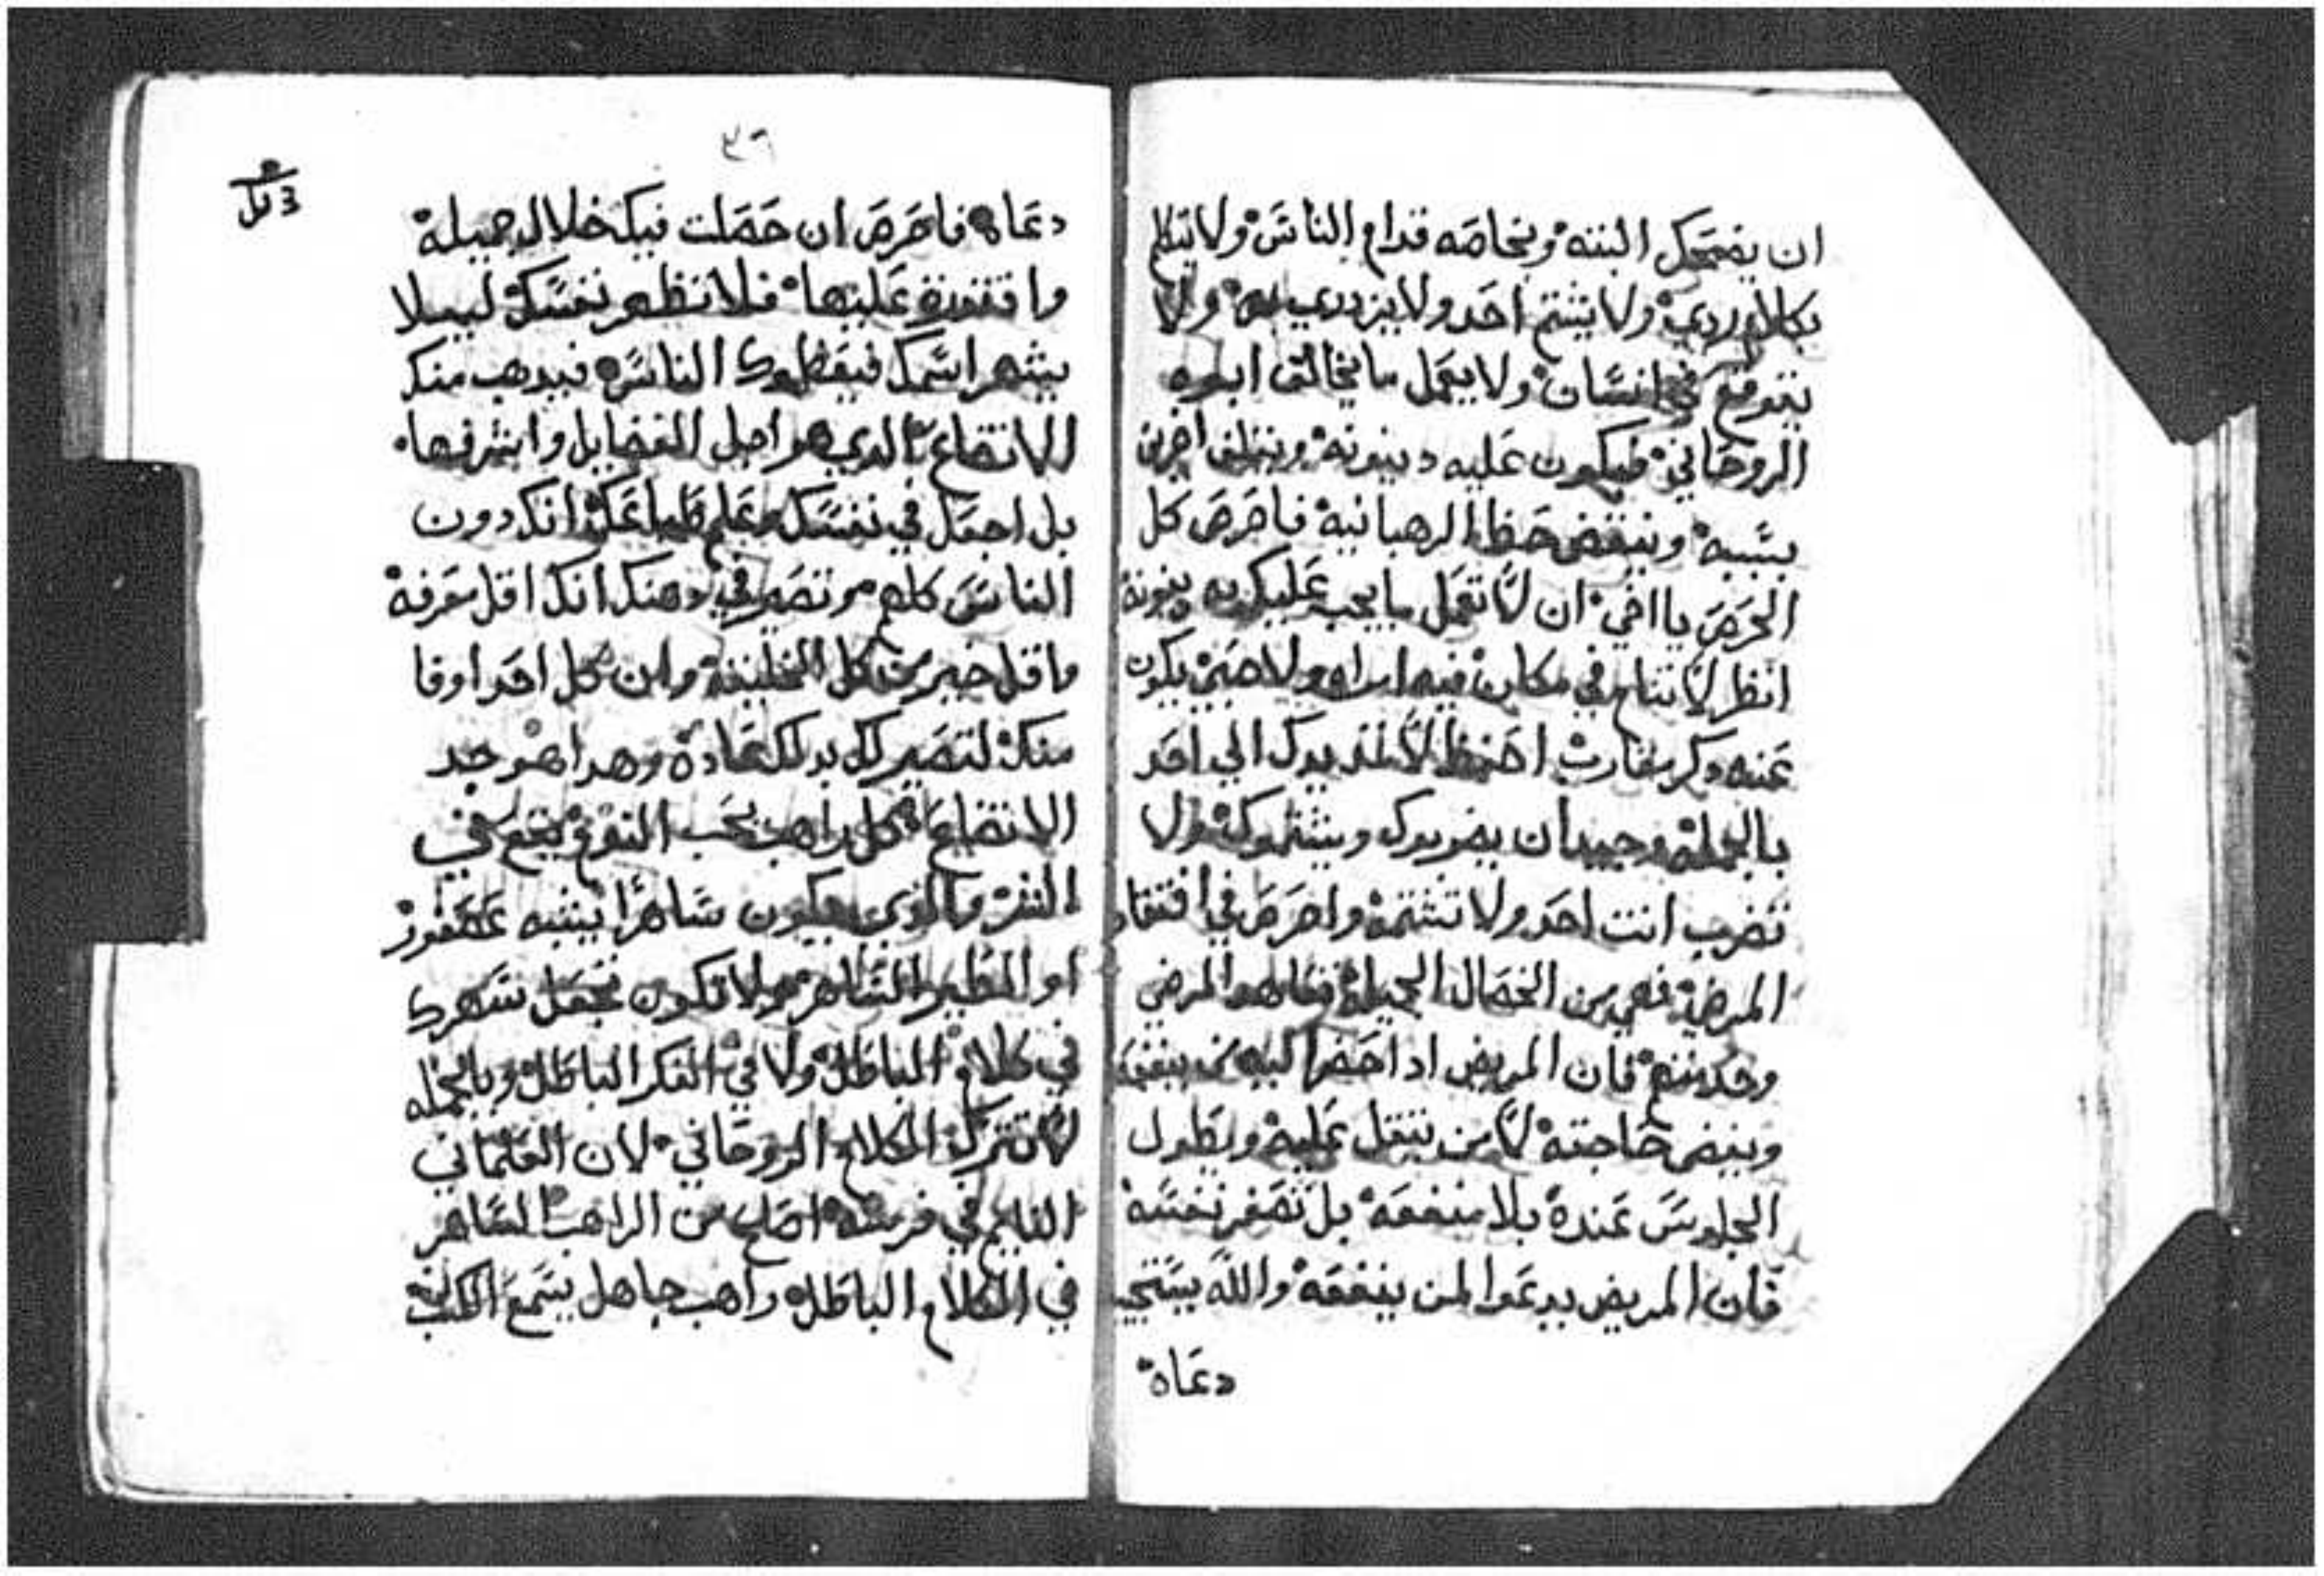 ان يضحك البته وبخاصه قدام الناس ولا يتكلم
بكلام ردي ولا يشتم احد ولا يزدري به ولا
يتوقع في انسان ولا يعمل ما يخالف ابوه
الروحاني فيكون عليه دينونه ويتلف اخرين
بسببه وينقض حفظ الرهبانيه فاحرص كل
الحرص يا اخي ان لا تعمل ما يجب عليك به دينونه
انظر لا تنام في مكان فيه امراه ولا صبي يكون
عنه ذكر احفظ لا تمد يدك الي احد
بالجمله وجيد ان يضربوك ويشتموك ولا
تضرب انت احد ولا تشتمه واحرص في افتقاد
المرضي فهي من الخصال الجميله المرضي
فان المريض ادا احضر اليه من
ويقضي حاجته لا من يتقل عليه ويطول
الجلوس عنده بلا منفعه بل تصغر نفسه
فان المريض يدعوا لمن ينفعه والله يستجيب
دعاه
٣٦
دعاه فاحرص ان حملت فيك خلال جميله
واقتدرت عليها فلا تظهر نفسك ليلا
يشهر اسمك فيعظموك الناس فيدهب منك
الاتضاع الدي هو اصل الفضايل واشرفها
بل اجعل في نفسك وعلم قلبك انك دون
الناس كلهم وتصير في دهنك انك اقل معرفه
واقل خير من كل الخليقه وان كل احد اوفا
منك لتصير لك بدلك عاده وهدا هو جد
الاتضاع كل راهب يحب النوم يقع في
الشر والدي يكون ساهرا يشبه عصفور
او الطير الساهر ولا تكون تجعل سهرك
في كلام الباطل ولا في الفكر الباطل وبالجمله
لا تترك الكلام الروحاني لان العلماني
النايم في فرشه اصلح من الراهب الساهر
في الكلام الباطل راهب جاهل يسمع